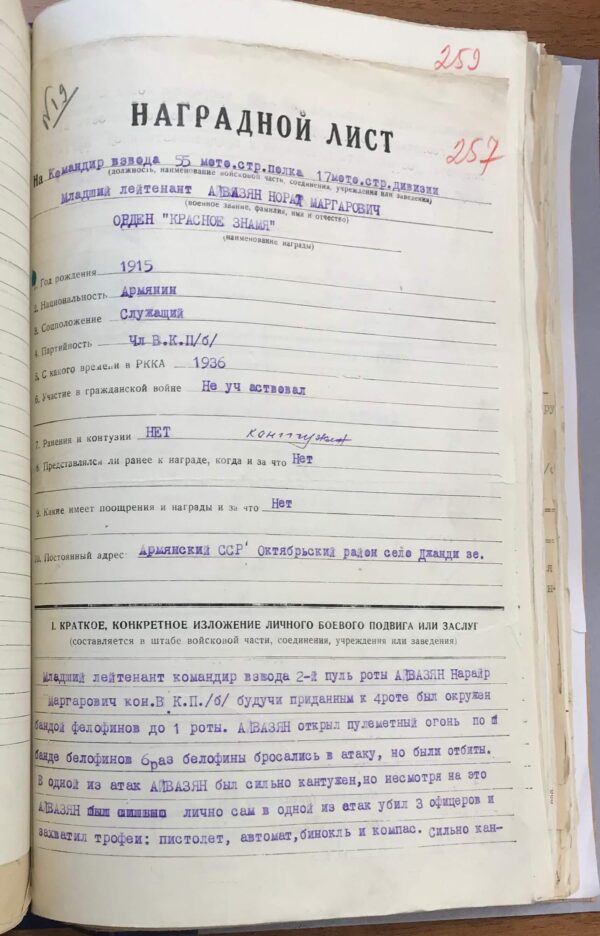 259
№19
НАГРАДНОЙ ЛИСТ
257
На Командир взвода 55 мото.стр.полка 17мото.стр.дивизии
(должность, наименование войсковой части, соединения, учреждения или заведения)
Младший лейтенант АЙВАЗЯН НОРАЙ МАРГАРОВИЧ
(военное звание, фамилия, имя и отчество)
ОРДЕН "КРАСНОЕ ЗНАМЯ"
(наименование награды)
1. Год рождения 1915
2. Национальность Армянин
3. Соцположение Служащий
4. Партийность Чл В.К.П/б/
5. С какого времени в РККА 1936
6. Участие в гражданской войне Не уч аствовал
7. Ранения и контузии НЕТ контужен
8. Представлялся ли ранее к награде, когда и за что Нет
9. Какие имеет поощрения и награды и за что Нет
10. Постоянный адрес Армянский ССР Октябрьский район село джанди зе.
I. КРАТКОЕ, КОНКРЕТНОЕ ИЗЛОЖЕНИЕ ЛИЧНОГО БОЕВОГО ПОДВИГА ИЛИ ЗАСЛУГ
(составляется в штабе войсковой части, соединения, учреждения или заведения)
Младший лейтенант командир взвода 2-й пуль роты АЙВАЗЯН Нарайр
Маргарович кон.В К.П./б/ будучи приданным к 4роте был окружен
бандой фелофинов до 1 роты. АЙВАЗЯН открыл пулеметный огонь по
банде белофинов 6раз белофины бросались в атаку, но были отбиты.
В одной из атак АЙВАЗЯН был сильно кантужен,но несмотря на это
АЙВАЗЯН был сильно лично сам в одной из атак убил 3 офицеров и
захватил трофеи: пистолет, автомат,бинокль и компас. Сильно кан-